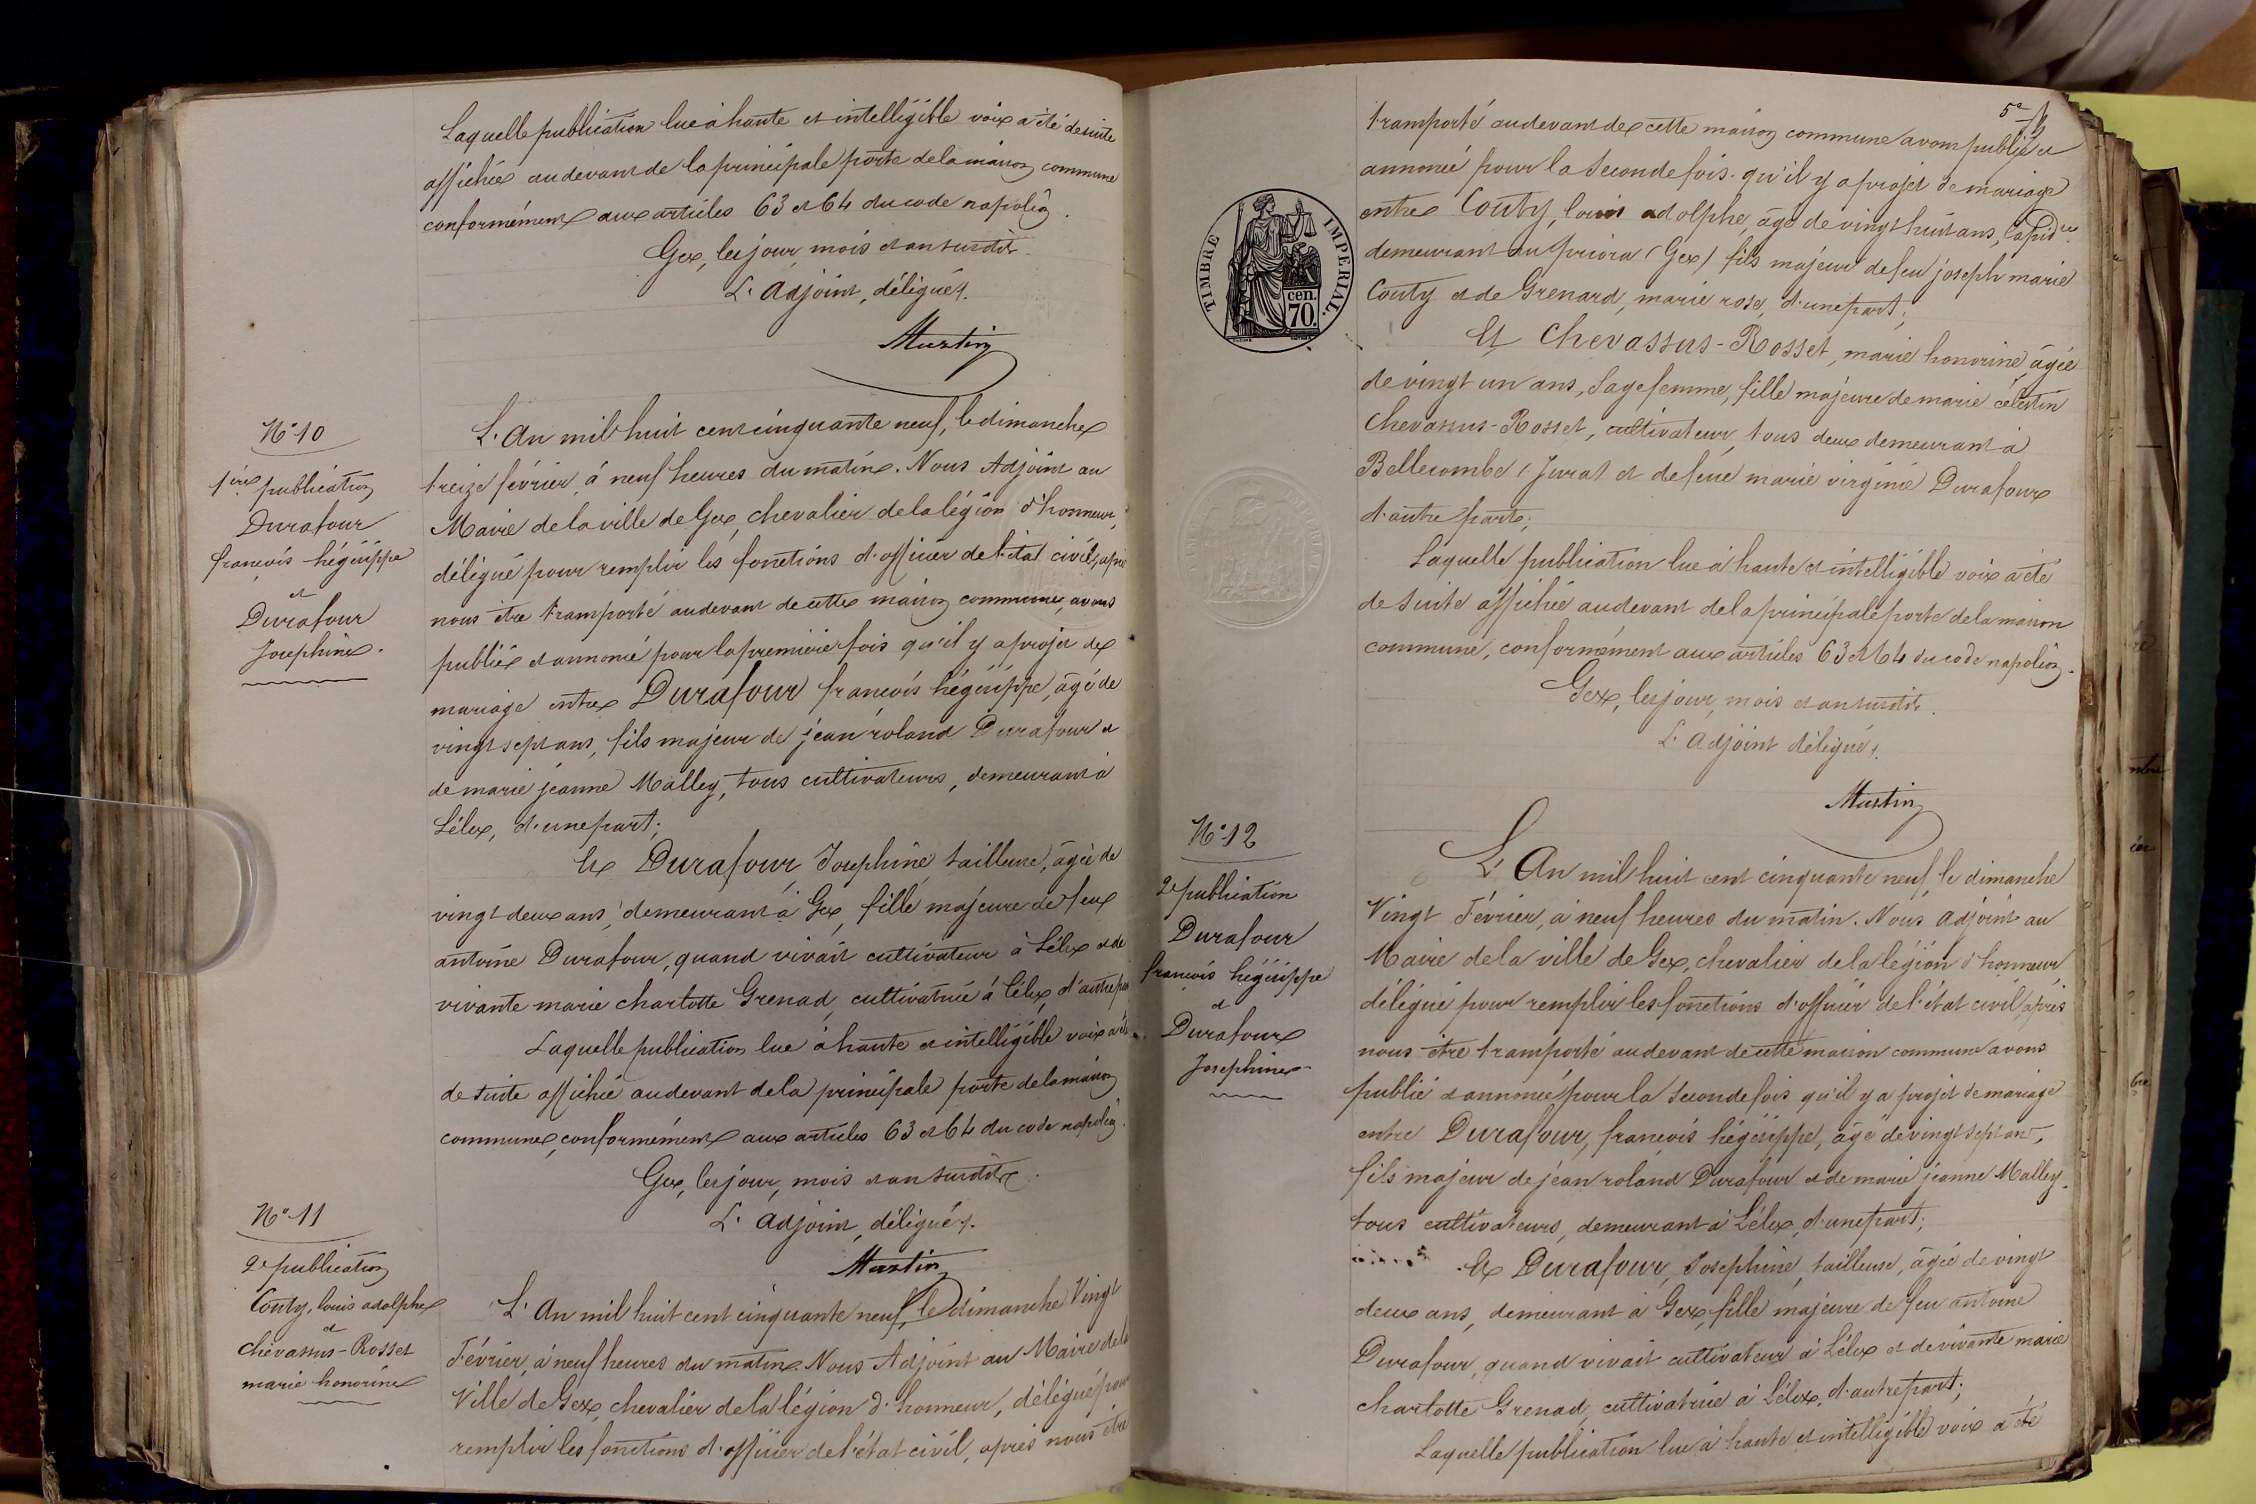 Laquelle publication lue à haute et intelligible voix a été de suite
affichée au devant de la principale porte de la maison commune
conformément aux articles 63 et 64 du code napoléon.
Gex, les jour, mois et an susdits.
L'adjoint, délégué.
Martin
N° 10
1ère publication
Durafour
françois hégésippe
et
Durafour
Josephine.
L'An mil huit cent cinquante neuf, le dimanche
treize février, à neuf heures du matin. Nous Adjoint au
Maire de la ville de Gex, chevalier de la légion d'honneur,
délégué pour remplir les fonctions d'officier de l'état civil, après
nous être transporté au devant de cette maison commune, avons
publié et annoncé pour la première fois qu'il y a projet de
mariage entre Durafour françois hégésippe, âgé de
vingt sept ans, fils majeur de jean roland Durafour et
de marie jeanne Malley, tous cultivateurs, demeurant à
Lélex, d'une part;
Et Durafour Josephine, tailleuse, âgée de
vingt deux ans, demeurant à Gex, fille majeure de feu
antoine Durafour, quand vivait cultivateur à Lélex et de
vivante marie charlotte Grenad, cultivatrice à Lélex, d'autre part
Laquelle publication lue à haute et intelligible voix a été
de suite affichée au devant de la principale porte de la maison
commune, conformément aux articles 63 et 64 du code napoléon.
Gex, les jour, mois et an susdits.
L'adjoint, délégué.
Martin
N° 11
2e publication
Couty, louis adolphe
et
chevassus-Rosset
marie honorine
L'An mil huit cent cinquante neuf, le dimanche Vingt
Février, à neuf heures du matin. Nous Adjoint au Maire de la
Ville de Gex, chevalier de la légion d'honneur, délégué pour
remplir les fonctions d'officier de l'état civil, après nous être
5e
TIMBRE IMPERIAL.
cen.
70.
transporté au devant de cette maison commune avons publié et
annoncé pour la seconde fois qu'il y a projet de mariage
entre Couty, louis adolphe, âgé de vingt huit ans, lapidre
demeurant au (Gex) fils majeur de feu joseph marie
Couty et de Grenard, marie rose, d'une part;
Et Chevassus-Rosset, marie honorine, âgée
de vingt un ans, Sage femme, fille majeure de marie célestin
Chevassus-Rosset, cultivateur, tous deux demeurant à
Bellecombe (Jura) et de feue marie virginie Durafour
d'autre part;
Laquelle publication lue à haute et intelligible voix a été
de suite affichée au devant de la principale porte de la maison
commune, conformément aux articles 63 et 64 du code napoléon.
Gex, les jour, mois et an susdits.
L'adjoint délégué.
Martin
N° 12
2e publication
Durafour
françois hégésippe
et
Durafour
Josephine
L'An mil huit cent cinquante neuf, le dimanche
Vingt Février, à neuf heures du matin. Nous adjoint au
Maire de la ville de Gex, chevalier de la légion d'honneur,
délégué pour remplir les fonctions d'officier de l'état civil, après
nous être transporté au devant de cette maison commune avons
publié et annoncé pour la seconde fois qu'il y a projet de mariage
entre Durafour, françois hégésippe, âgé de vingt sept ans,
fils majeur de jean roland Durafour et de marie jeanne Malley,
tous cultivateurs, demeurant à Lélex, d'une part;
Et Durafour, Josephine, tailleuse, âgée de vingt
deux ans, demeurant à Gex, fille majeure de feu antoine
Durafour, quand vivait cultivateur à Lélex et de vivante marie
charlotte Grenad, cultivatrice à Lélex, d'autre part;
Laquelle publication lue à haute et intelligible voix a été